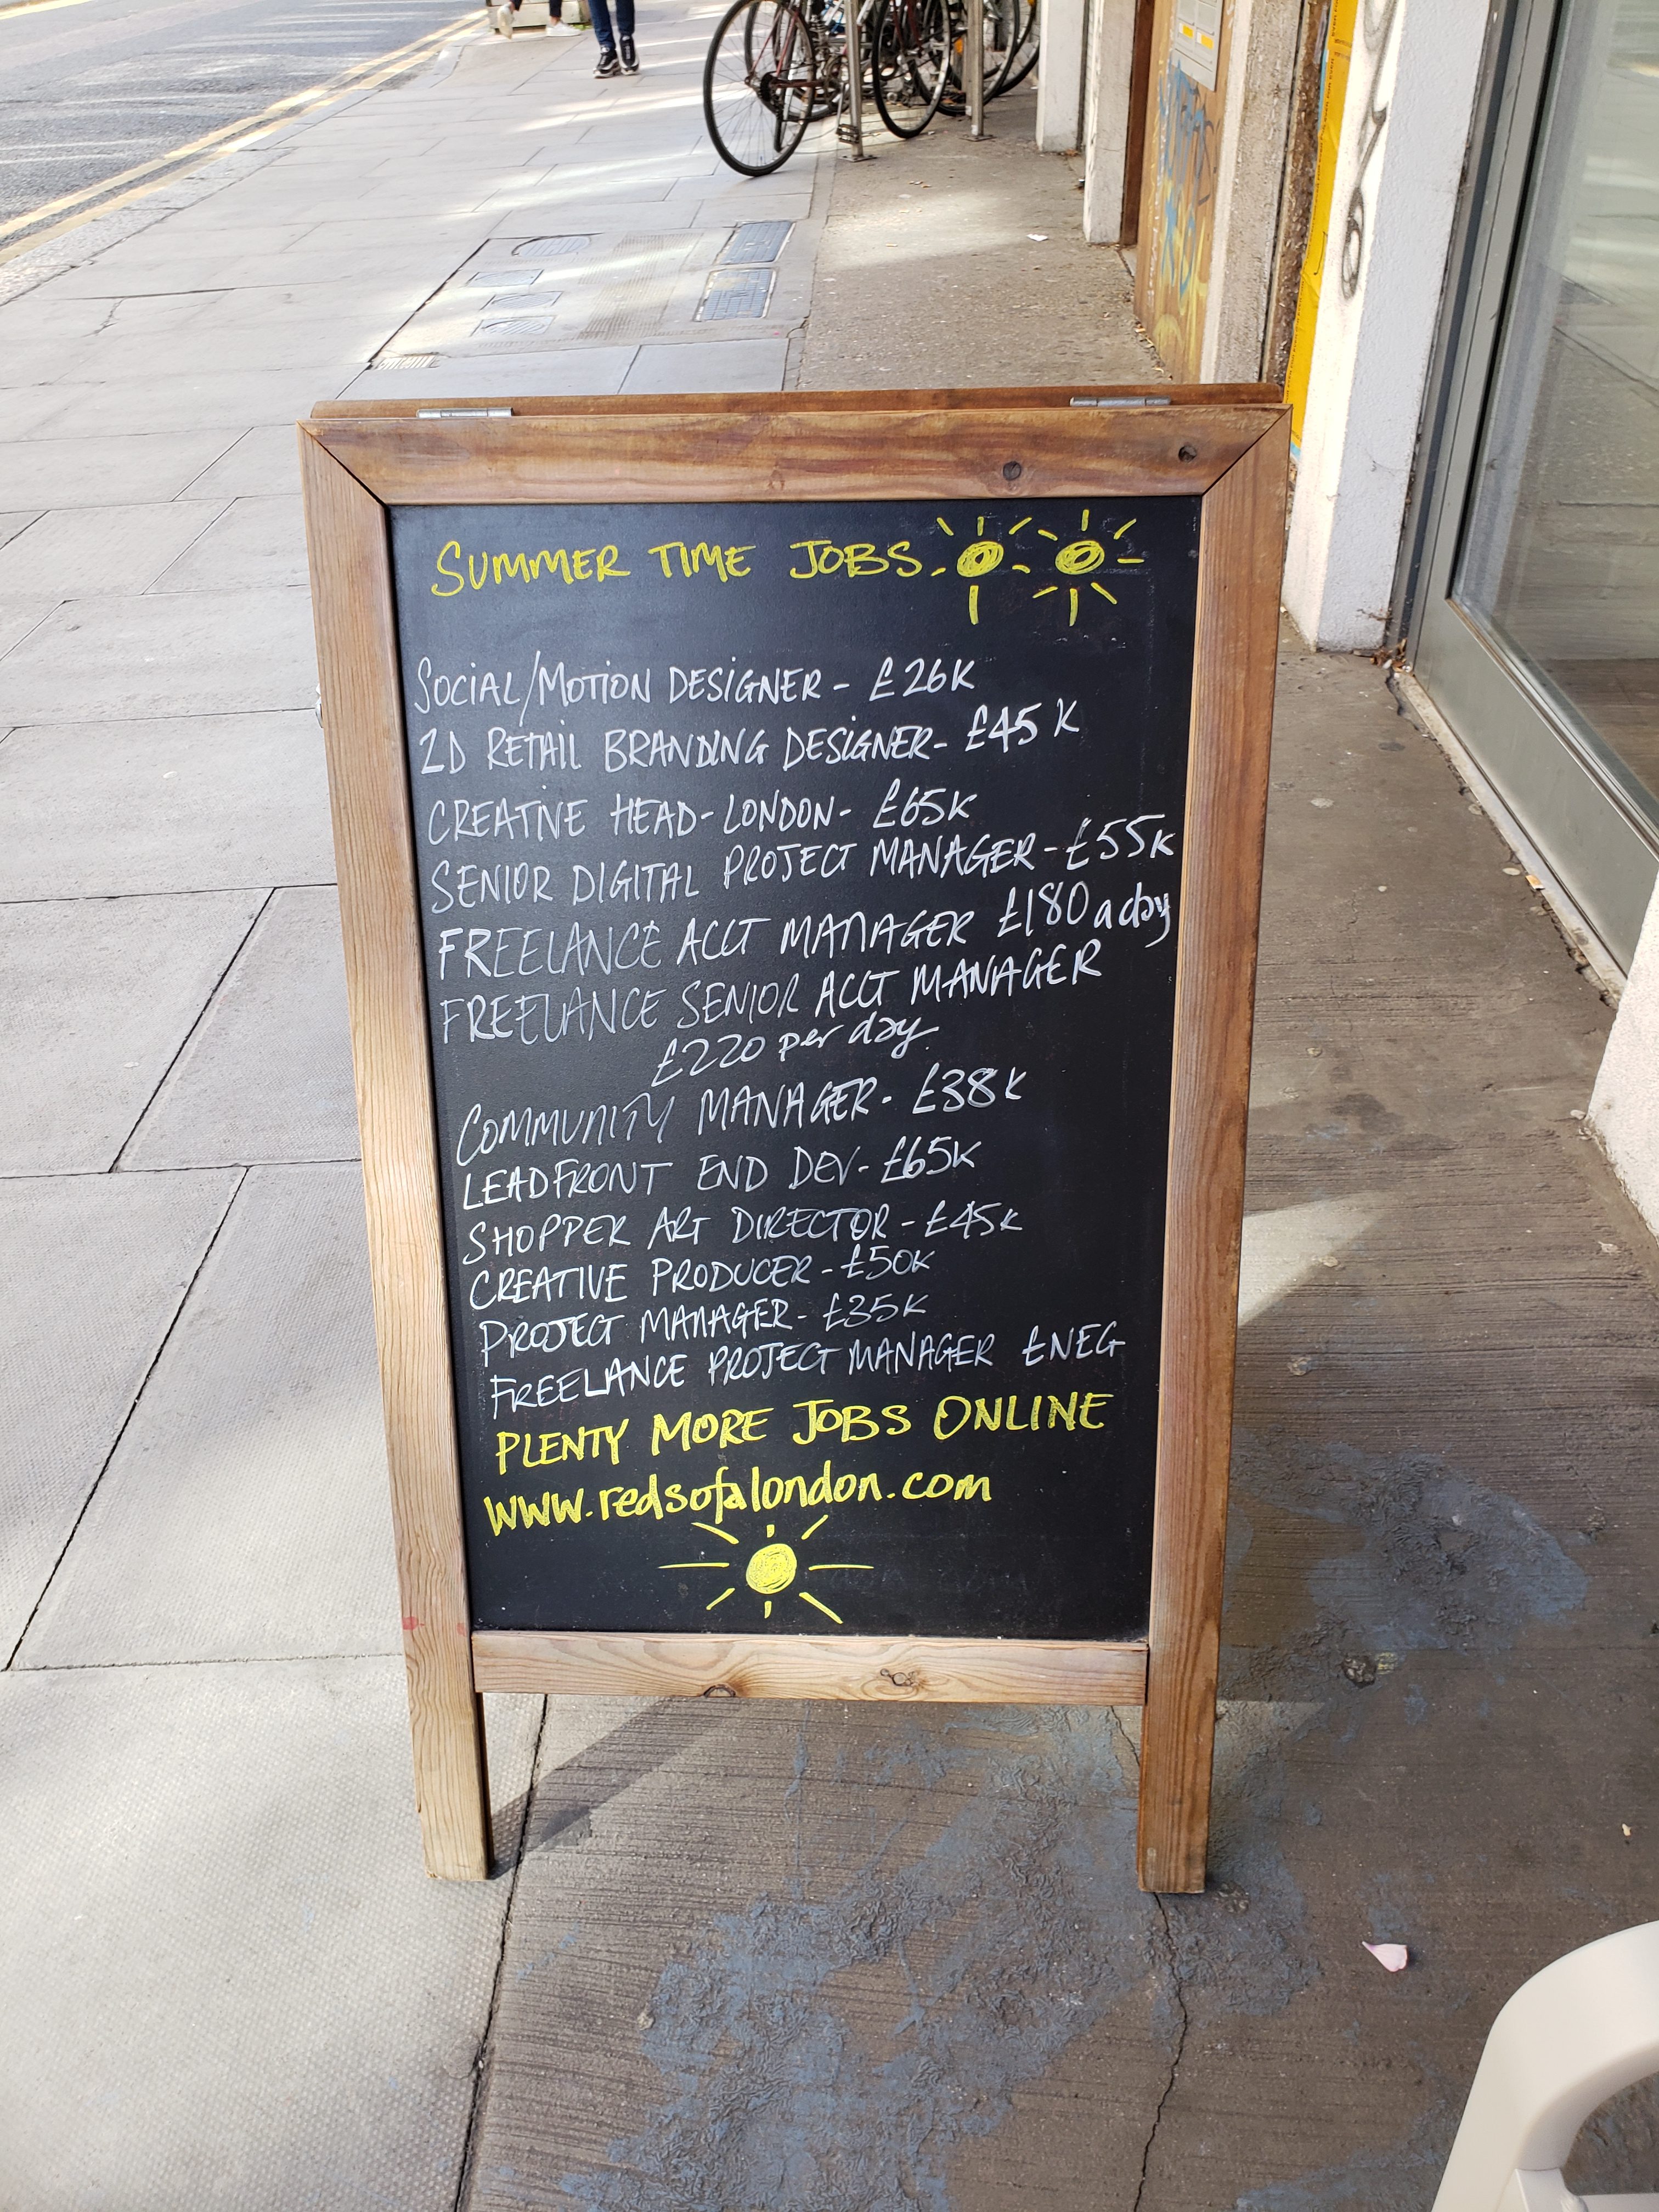 SUMMER TIME JOBS
SOCIAL/MOTION DESIGNER - £26K
2D RETAIL BRANDING DESIGNER- £45K
CREATIVE HEAD-LONDON- £65K
SENIOR DIGITAL PROJECT MANAGER-£55K
FREELANCE ACCT MANAGER £180 a day
FREELANCE SENIOR ACCT MANAGER
£220 per day.
COMMUNITY MANAGER- £38K
LEAD FRONT END DEV- £65K
SHOPPER ART DIRECTOR - £45K
CREATIVE PRODUCER - £50K
PROJECT MANAGER- £35K
FREELANCE PROJECT MANAGER £NEG
PLENTY MORE JOBS ONLINE
www.redsofalondon.com